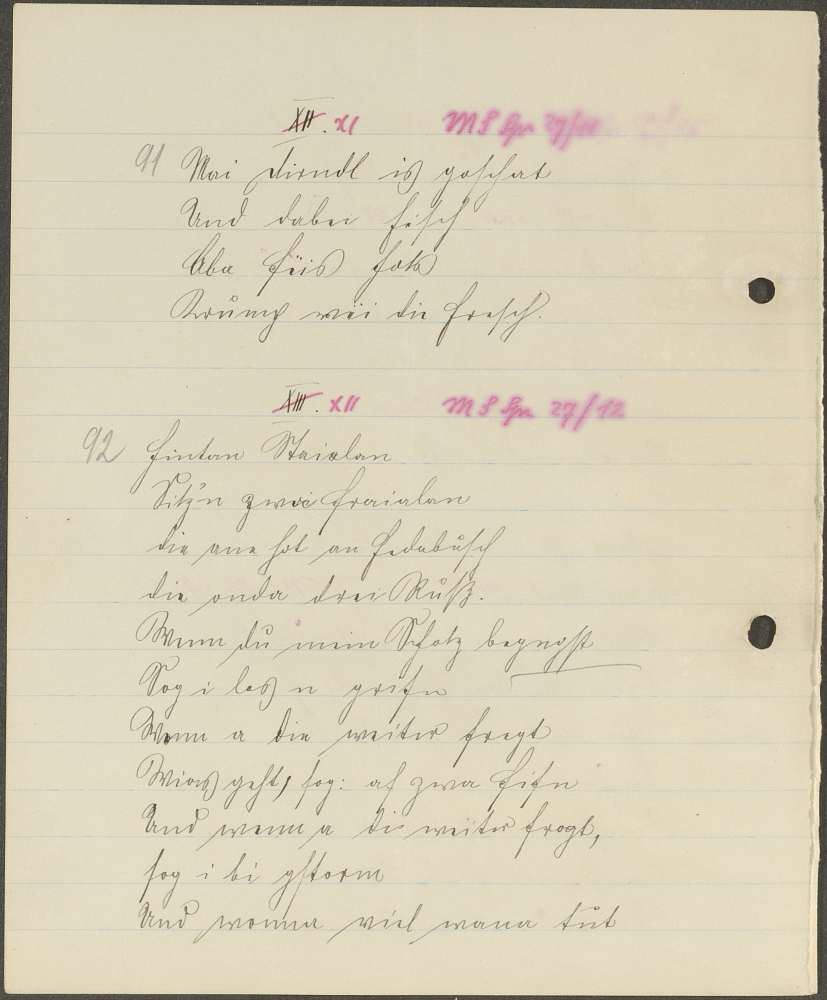 XII. XI M S Spr 27/11
91 Mai Dirndl is goschat
Und dabei fesch
Aba Füis hots
Krump wii die Fresch.
XIII. XII M S Spr 27/12
92 Hintan Staialan
Sitz'n zwei Fraialan
die ane hot an Fedabusch
die onda drei Ruß.
Wenn du mein Schotz begegst
Sog i los n grüßn
Wenn a die weiter fregt
Wias geht, sog: af zwa Fißn
Und wenn a di weiter frogt,
sog i bi gstorm
Und wonna viel wana tut